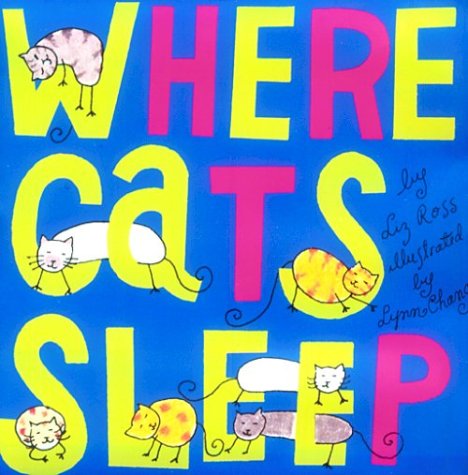 WHERE
CaTS
SLEEP
by
Liz Ross
illustrated
by
Lynn Chang